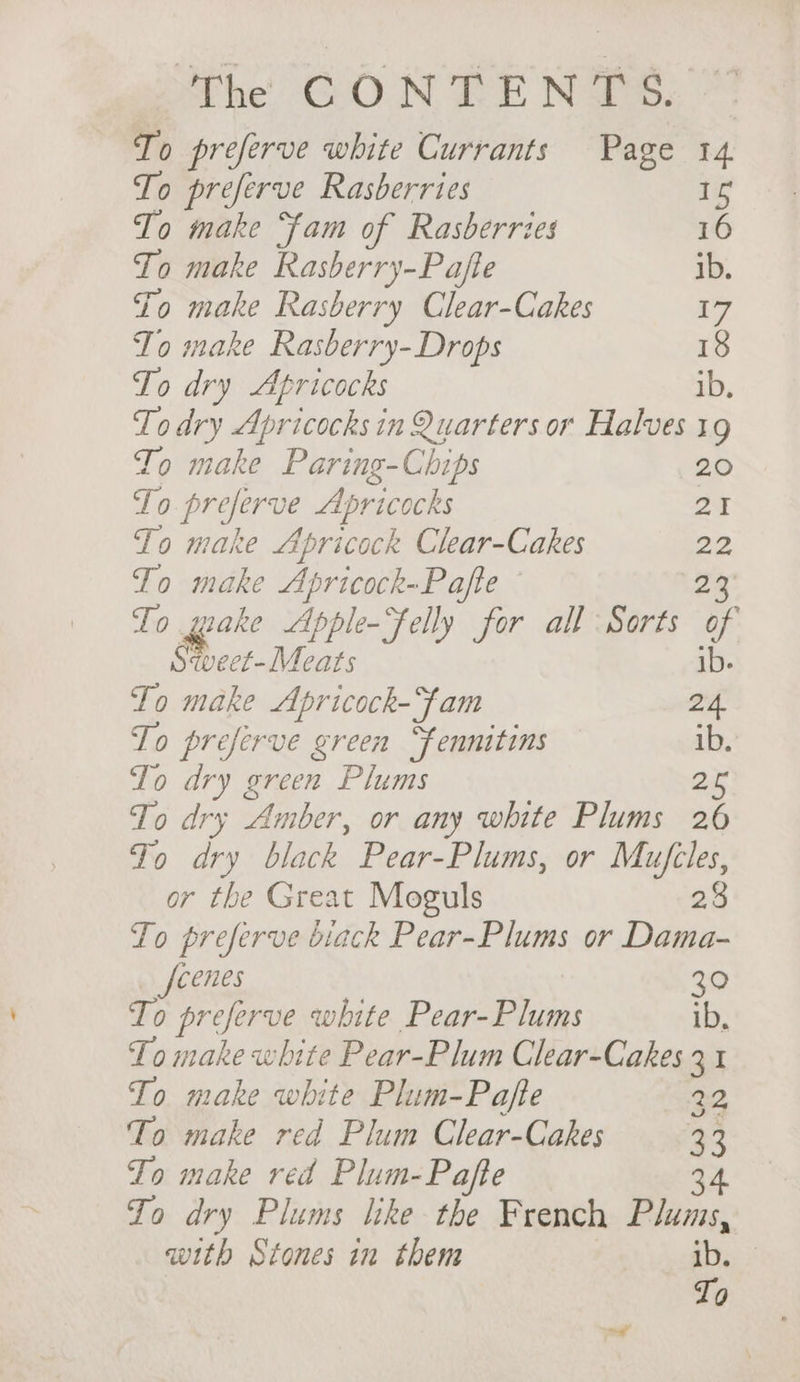 The CONTENTS.
To preſerve white Currants Page 14
To preſerve Rasberries 15
To make Jam of Rasberries 16
To make Rasberry-Paſte ib.
To make Rasberry Clear-Cakes 17
To make Rasberry-Drops 18
To dry Apricocks ib.
To dry Apricocks in Quarters or Halves 19
To make Paring-Chips 20
To preſerve Apricocks 21
To make Apricock Clear-Cakes 22
To make Apricock-Paſte 23
To make Apple-Jelly for all Sorts of
Sweet-Meats ib.
To make Apricock-Jam 24
To preſerve green Jennitins ib.
To dry green Plums 25
To dry Amber, or any white Plums 26
To dry black Pear-Plums, or Muſcles,
or the Great Moguls 28
To preſerve black Pear-Plums or Dama-
ſcenes 30
To preſerve white Pear-Plums ib.
To make white Pear-Plum Clear-Cakes 31
To make white Plum-Paſte 32
To make red Plum Clear-Cakes 33
To make red Plum-Paſte 34
To dry Plums like the French Plums,
with Stones in them ib.
To